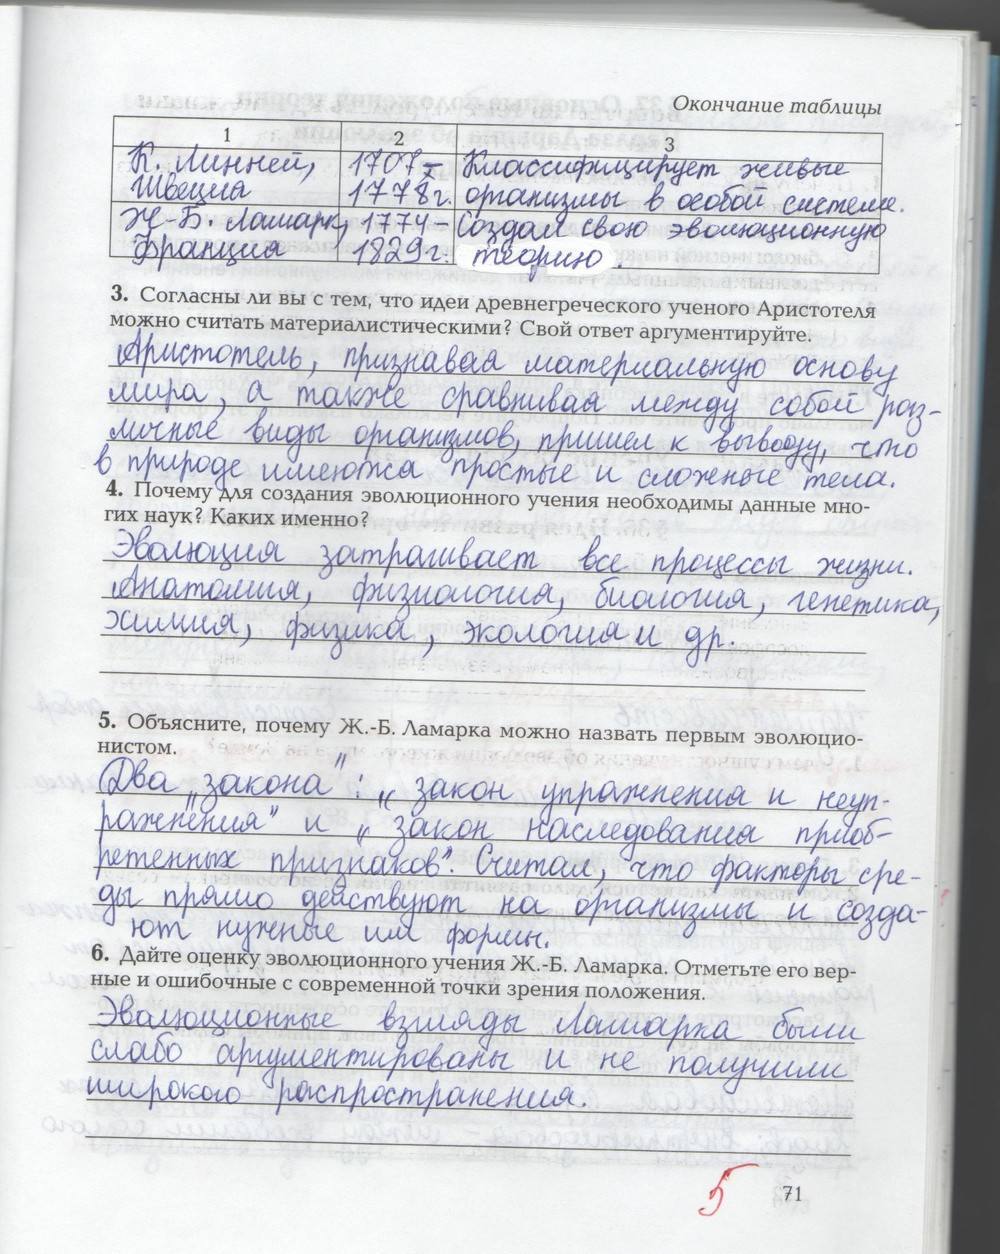 Окончание таблицы
1 2 3
К. Линней, 1707– Классифицирует живые
Швеция 1778г. организмы в особой системе.
Ж Б. Ламарк, 1774– Создал свою эволюционную
Франция 1829г. теорию.
3. Согласны ли вы с тем, что идеи древнегреческого ученого Аристотеля
можно считать материалистическими? Свой ответ аргументируйте.
Аристотель, признавая материальную основу
мира, а также сравнивая между собой раз-
личные виды организмов, пришел к выводу, что
в природе имеются простые и сложные тела.
4. Почему для создания эволюционного учения необходимы данные мно-
гих наук? Каких именно?
Эволюция затрагивает все процессы жизни.
Анатомия, физиология, биология, генетика,
химия, физика, экология и др.
5. Объясните, почему Ж.-Б. Ламарка можно назвать первым эволюцио-
нистом.
Два „закона": „закон упражнения и неуп-
ражнения" и „закон наследования приоб-
ретенных признаков". Считал, что факторы сре-
ды прямо действуют на организмы и созда-
ют нужные им формы.
6. Дайте оценку эволюционного учения Ж.-Б. Ламарка. Отметьте его вер-
ные и ошибочные с современной точки зрения положения.
Эволюционные взгляды Ламарка были
слабо аргументированы и не получили
широкого распространения.
5
71